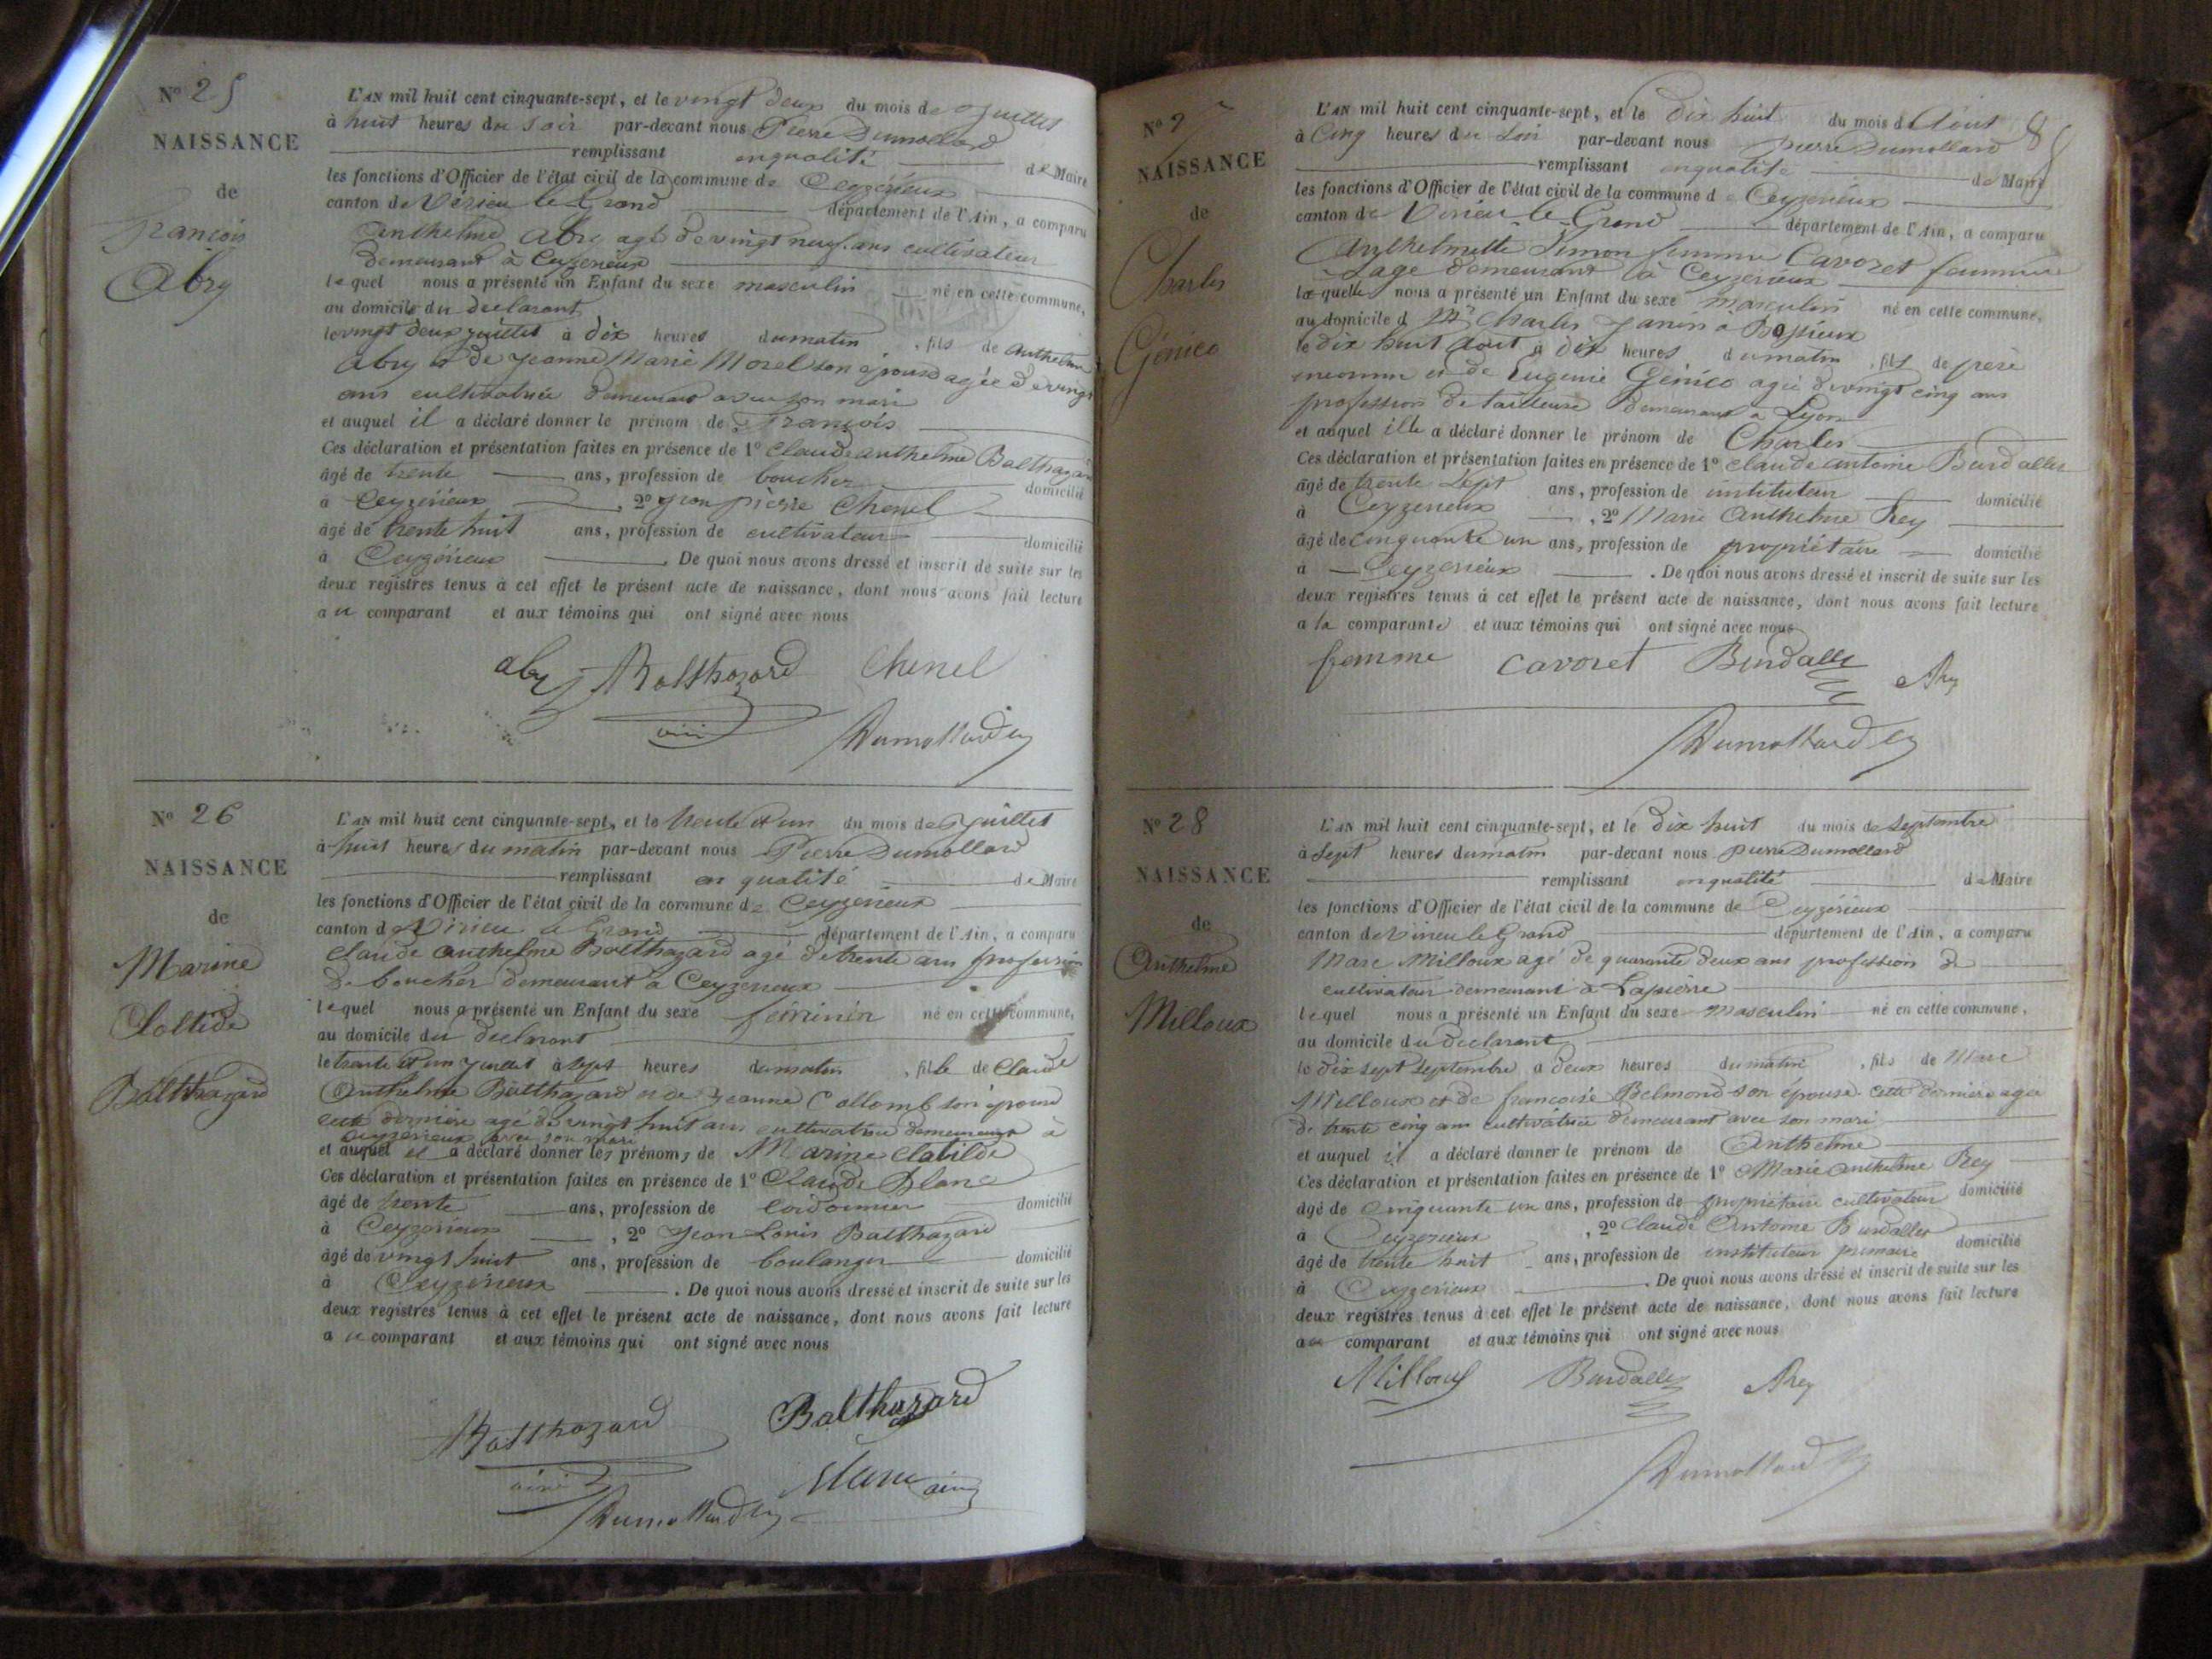 Nº 25
NAISSANCE
de
François
Abry
L'AN mil huit cent cinquante-sept, et le vingt deux du mois de Juillet
à huit heures du soir par-devant nous Pierre Dumollard
remplissant en qualité de Maire
les fonctions d'Officier de l'état civil de la commune de Ceyzérieux
canton de Virieu le Grand département de l'Ain, a comparu
Anthelme Abry agé de vingt neuf ans cultivateur
demeurant à Ceyzerieux
lequel nous a présenté un Enfant du sexe masculin né en cette commune,
au domicile du declarant
le vingt deux juillet à dix heures du matin, fils de Anthelme
Abry et de Jeanne Marie Morel son épouse agée de vingt
ans cultivatrice demeurant avec son mari
et auquel il a déclaré donner le prénom de François
Ces déclaration et présentation faites en présence de 1º Claude anthelme Balthazard
âgé de trente ans, profession de boucher domicilié
à Ceyzerieux, 2º Jean pierre Chenel
âgé de trente huit ans, profession de cultivateur domicilié
à Ceyzérieux. De quoi nous avons dressé et inscrit de suite sur les
deux registres tenus à cet effet le présent acte de naissance, dont nous avons fait lecture
au comparant et aux témoins qui ont signé avec nous
abry Balthazard Chenel
Dumollard
Nº 26
NAISSANCE
de
Marine
Clotilde
Balthazard
L'AN mil huit cent cinquante-sept, et le trente et un du mois de Juillet
à huit heures du matin par-devant nous Pierre Dumollard
remplissant en qualité de Maire
les fonctions d'Officier de l'état civil de la commune de Ceyzerieux
canton de Virieu le Grand département de l'Ain, a comparu
Claude Anthelme Balthazard agé de trente ans profession
de boucher demeurant à Ceyzerieux
lequel nous a présenté un Enfant du sexe féminin né en cette commune,
au domicile du declarant
le trente et un Juillet à sept heures du matin, fille de Claude
Anthelme Balthazard et de Jeanne Collomb son épouse
cette dernière agé de vingt huit ans cultivatrice demeurant à
Ceyzerieux avec son mari
et auquel il a déclaré donner les prénoms de Marine Clotilde
Ces déclaration et présentation faites en présence de 1º Claude Blanc
âgé de trente ans, profession de Cordonnier domicilié
à Ceyzerieux, 2º Jean Louis Balthazard
âgé de vingt huit ans, profession de boulanger domicilié
à Ceyzerieux. De quoi nous avons dressé et inscrit de suite sur les
deux registres tenus à cet effet le présent acte de naissance, dont nous avons fait lecture
au comparant et aux témoins qui ont signé avec nous
Balthazard Balthazard
Dumollard
Nº 27
NAISSANCE
de
Charles
Génico
85
L'AN mil huit cent cinquante-sept, et le dix huit du mois d'Août
à Cinq heures du soir par-devant nous pierre Dumollard
remplissant en qualité de Maire
les fonctions d'Officier de l'état civil de la commune de Ceyzerieux
canton de Virieu le Grand département de l'Ain, a comparu
Anthelmette Simon femme Cavoret femme
Sage demeurant à Ceyzerieux
laquelle nous a présenté un Enfant du sexe masculin né en cette commune,
au domicile d Mr Charles Janin à
le dix huit Aout à dix heures du matin, fils de père
inconnu et de Eugenie Génico agée de vingt cinq ans
profession de tailleuse demeurant a Lyon
et auquel elle a déclaré donner le prénom de Charles
Ces déclaration et présentation faites en présence de 1º Claude antoine Burdallet
âgé de trente sept ans, profession de instituteur domicilié
à Ceyzerieux, 2º Marie Anthelme Rey
âgé de cinquante un ans, profession de propriétaire domicilié
à Ceyzerieux. De quoi nous avons dressé et inscrit de suite sur les
deux registres tenus à cet effet le présent acte de naissance, dont nous avons fait lecture
a la comparante et aux témoins qui ont signé avec nous
femme Cavoret Burdallet Rey
Dumollard
Nº 28
NAISSANCE
de
Anthelme
Milloux
L'AN mil huit cent cinquante-sept, et le dix huit du mois de Septembre
à sept heures du matin par-devant nous pierre Dumollard
remplissant en qualité de Maire
les fonctions d'Officier de l'état civil de la commune de Ceyzérieux
canton de Virieu le Grand département de l'Ain, a comparu
Marc Milloux agé de quarante deux ans profession de
cultivateur demeurant à
lequel nous a présenté un Enfant du sexe masculin né en cette commune,
au domicile du declarant
le dix sept Septembre à deux heures du matin, fils de Marc
Milloux et de francoise Belmond son épouse cette derniere agée
de trente cinq ans cultivatrice demeurant avec son mari
et auquel il a déclaré donner le prénom de Anthelme
Ces déclaration et présentation faites en présence de 1º Marie Anthelme Rey
âgé de Cinquante un ans, profession de propriétaire cultivateur domicilié
à Ceyzerieux, 2º Claude Antoine Burdallet
âgé de trente huit ans, profession de instituteur primaire domicilié
à Ceyzerieux. De quoi nous avons dressé et inscrit de suite sur les
deux registres tenus à cet effet le présent acte de naissance, dont nous avons fait lecture
au comparant et aux témoins qui ont signé avec nous
Milloux Burdallet Rey
Dumollard